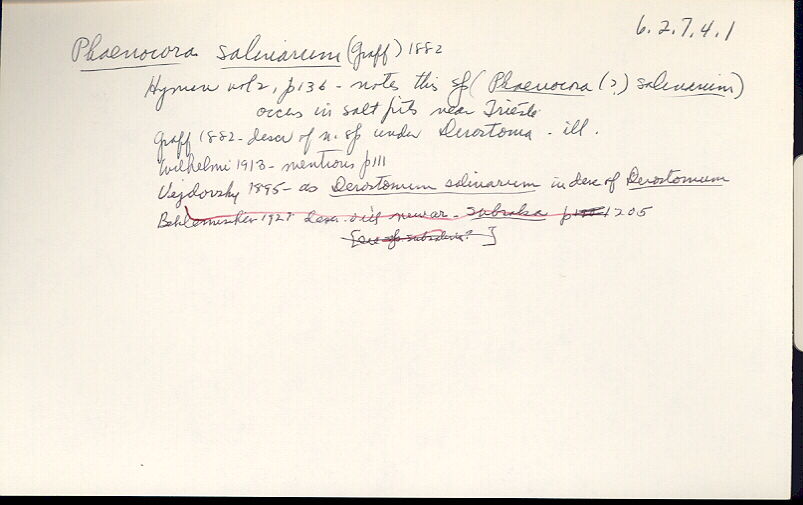 6.2.7.4.1
Phaenocora salinarum (Graff) 1882
Hyman vol 2, p136 - notes this sp (Phaenocora (?) salinarium)
occurs in salt pits near Trieste
Graff 1882 - descr of n. sp under Derostoma - ill.
Wilhelmi 1913 - mentions p111
Vejdovsky 1895 - as Derostomum salinarum in desc of Derostomum
Beklemischev 1927 descr. ill new var - subsalsa p 1205
[see sp subsalsia? ]